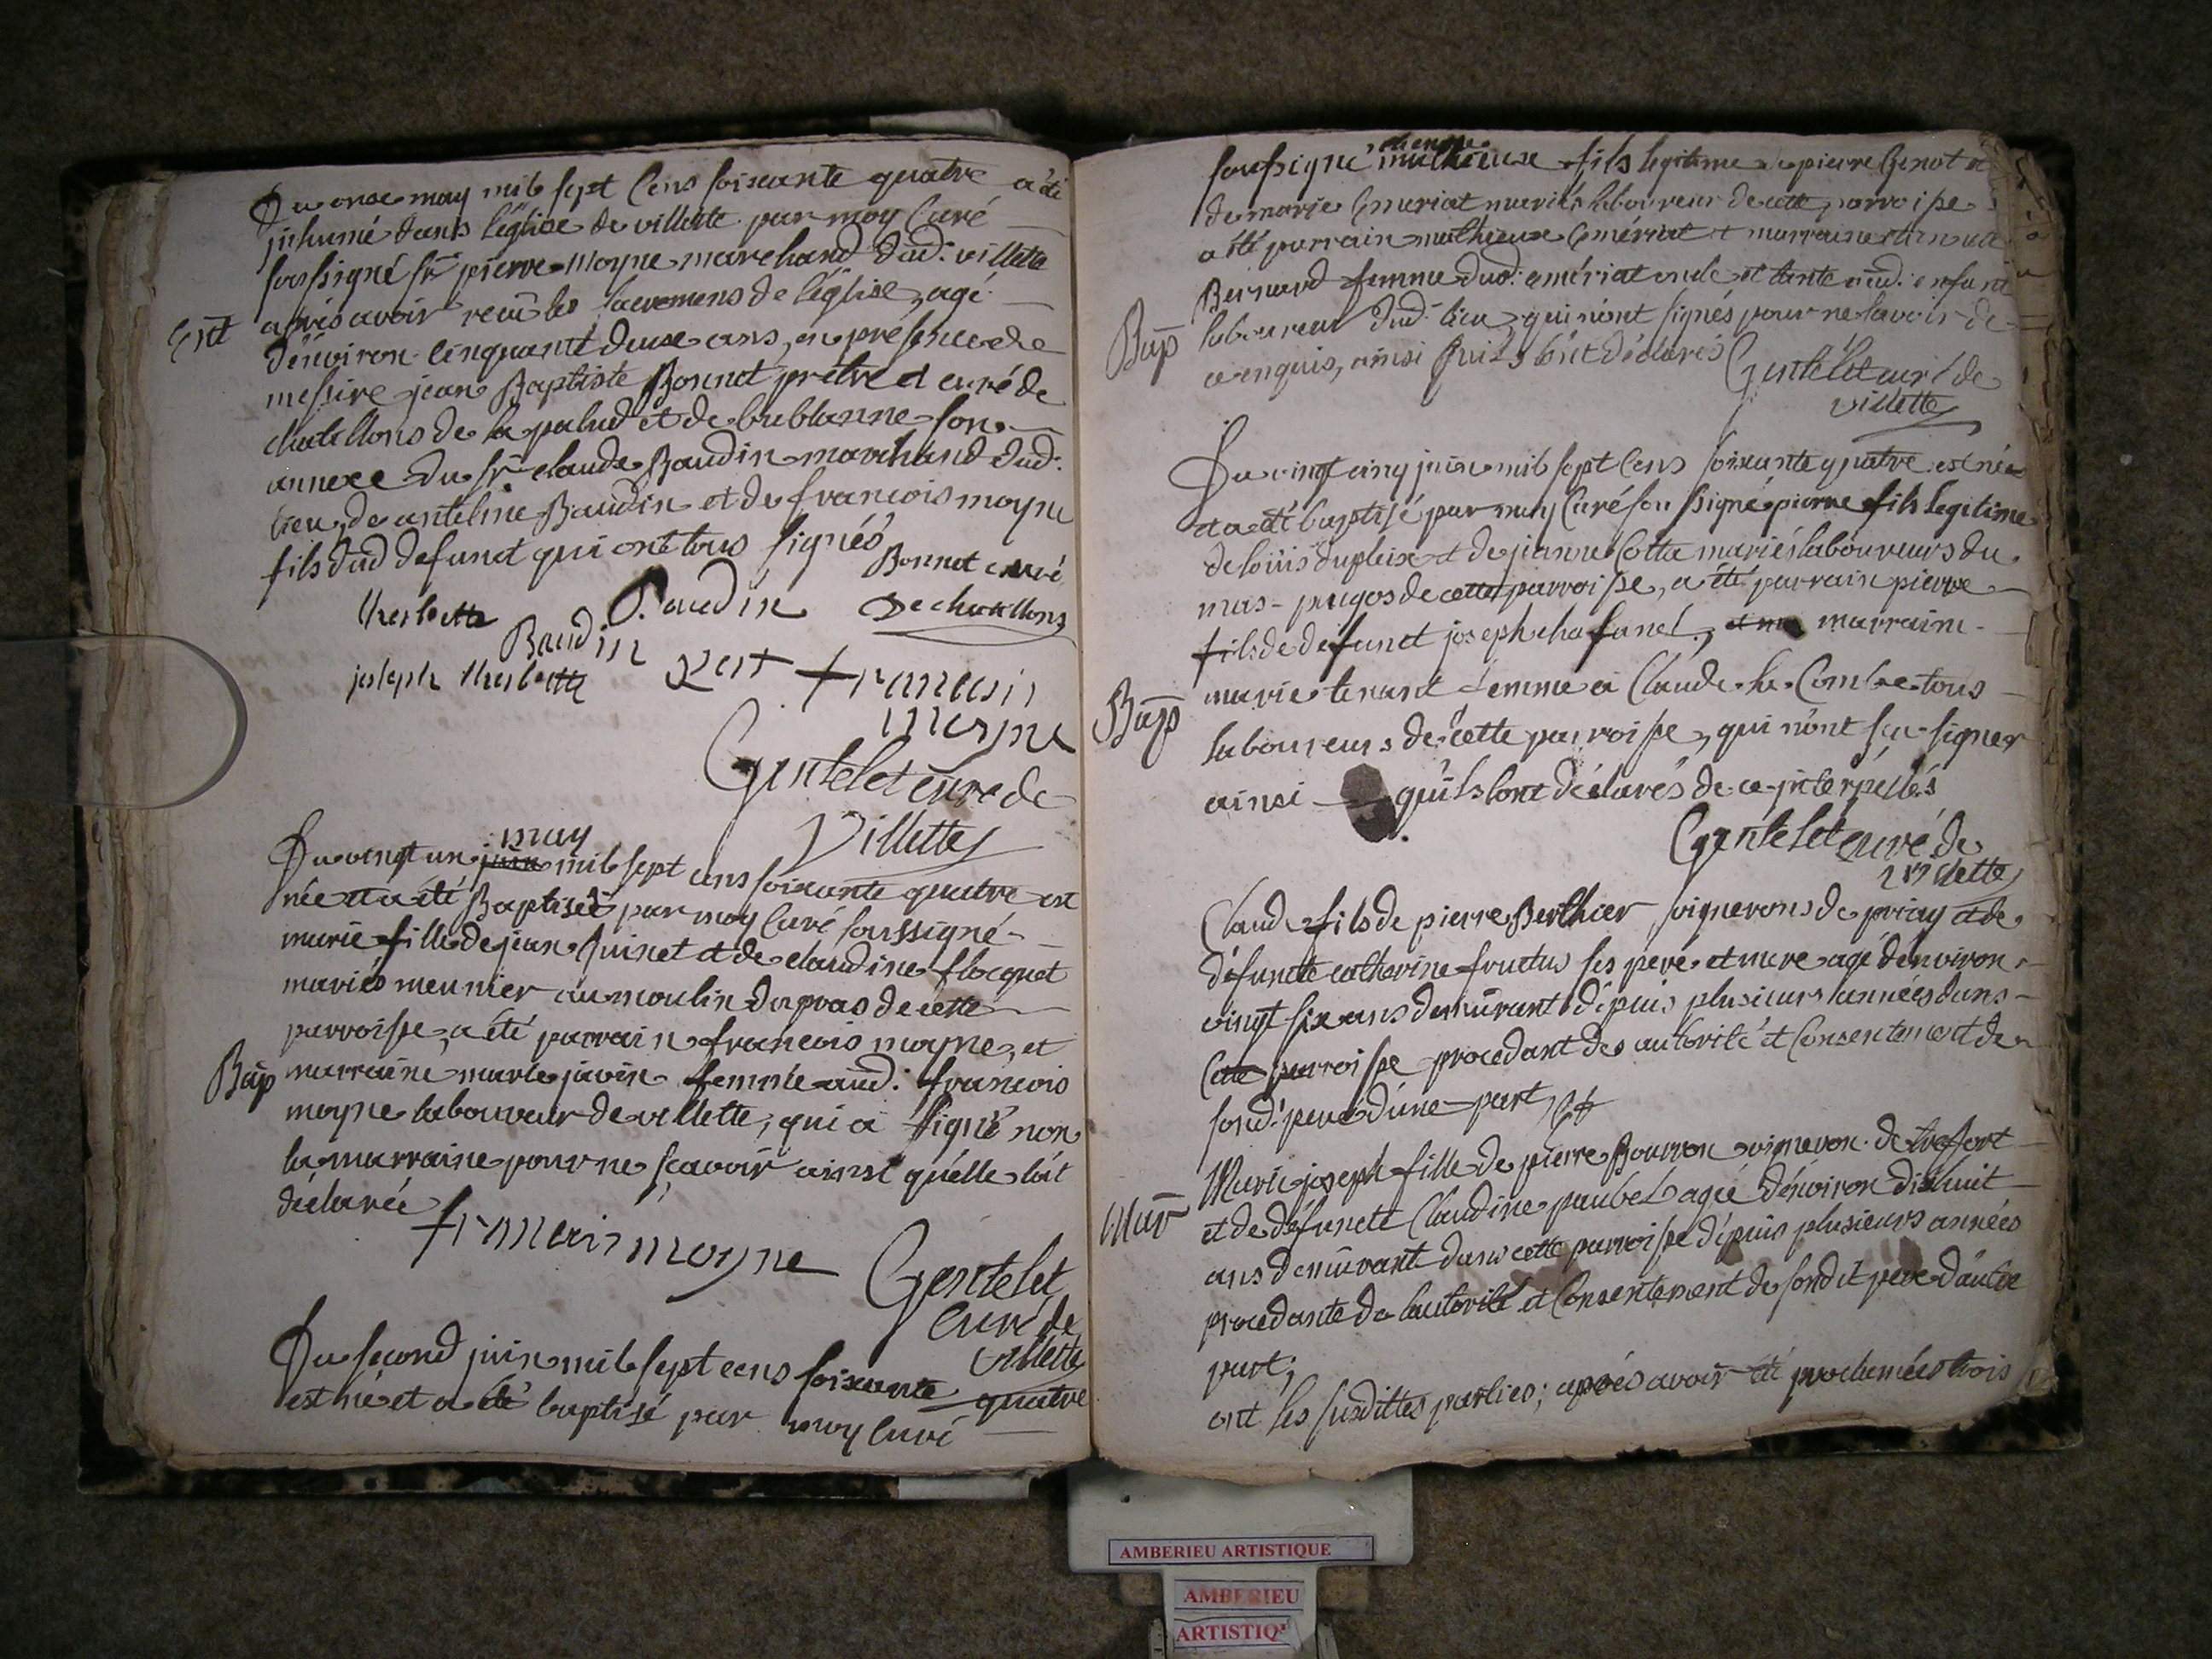 Du onze may mil sept cens soixante quatre a été
inhumé dans l'église de villette par moy curé
soussigné sr pierre moyne marchand dud: villette
après avoir reçu les sacremens de l'église, agé
d'environ cinquante deux ans, en présence de
messire jean Baptiste Bonnet prêtre et curé de
chatellons de la palud et de bublanne son
annexe du sr claude Baudin marchand dud:
lieu, de antelme Baudin et de francois moyne
fils dud defunct qui ont tous signés
Ent
Bonnet curé
De chatillons
therbette Baudin
Baudin
joseph therbette francois
moyne
Gentelet curé de
Villette
may
Du vingt un juin mil sept cens soixante quatre est
née et a été Baptisée par moy curé soussigné
marie fille de jean quinet et de claudine flocquet
mariés meunier au moulin du pras de cette
parroisse, a été parrain francois moyne, et
Bap
marraine marie javin femme aud: francois
moyne laboureur de villette, qui a signé non
la marraine pour ne sçavoir ainsi qu'elle l'at
déclarée
francois moyne
Gentelet
curé de
villette
Du second juin mil sept cens soixante quatre
est né et a été baptisé par moy curé
soussigné mathieux fils legitime de pierre Genot et
de marie Cmeriat mariés laboureur de cette parroisse
a été parrain mathieux Cmériat et marraine
Bernard femme dud: amériat oncle et tante aud: enfant
Bap
laboureur dud: lieu, qui n'ont signés pour ne savoir de
ce enquis, ainsi qu'ils l'ont déclarés Gentelet curé de
villette
Du vingt cinq juin mil sept cens soixante quatre est né
et a été baptisé par moy curé soussigné pierre fils legitime
de loüis dupleix et de jeanne Cotta mariés laboureurs du
mas-pugos de cette parroisse, a été parrain pierre
fils de defunct joseph chafanel, marraine
marie tenant femme à Claude la Combe tous
Bap
laboureurs de cette parroisse, qui n'ont sçu signer
ainsi qu'ils l'ont déclarés de ce interpellés
Gentelet curé de
villette
Claude fils de pierre Berthier, vignerons de priay et de
défuncte catherine fructus ses pere et mere agé d'environ
vingt six ans demeurant dépuis plusieurs années dans
Cette parroisse procedant des autorité et Consentement de
sond: pere d'une part, Et
Marie joseph fille de pierre Bourron vigneron de treffort
Mar
et de défuncte Claudine paubel agée d'environ dixhuit
ans demeurant dans cette parroisse dépuis plusieurs années
procedante de l'autorité et Consentement de sondit pere d'autre
part;
ont les susdittes parties; après avoir été proclamées trois
AMBERIEU ARTISTIQUE
AMBERIEU
ARTISTIQ